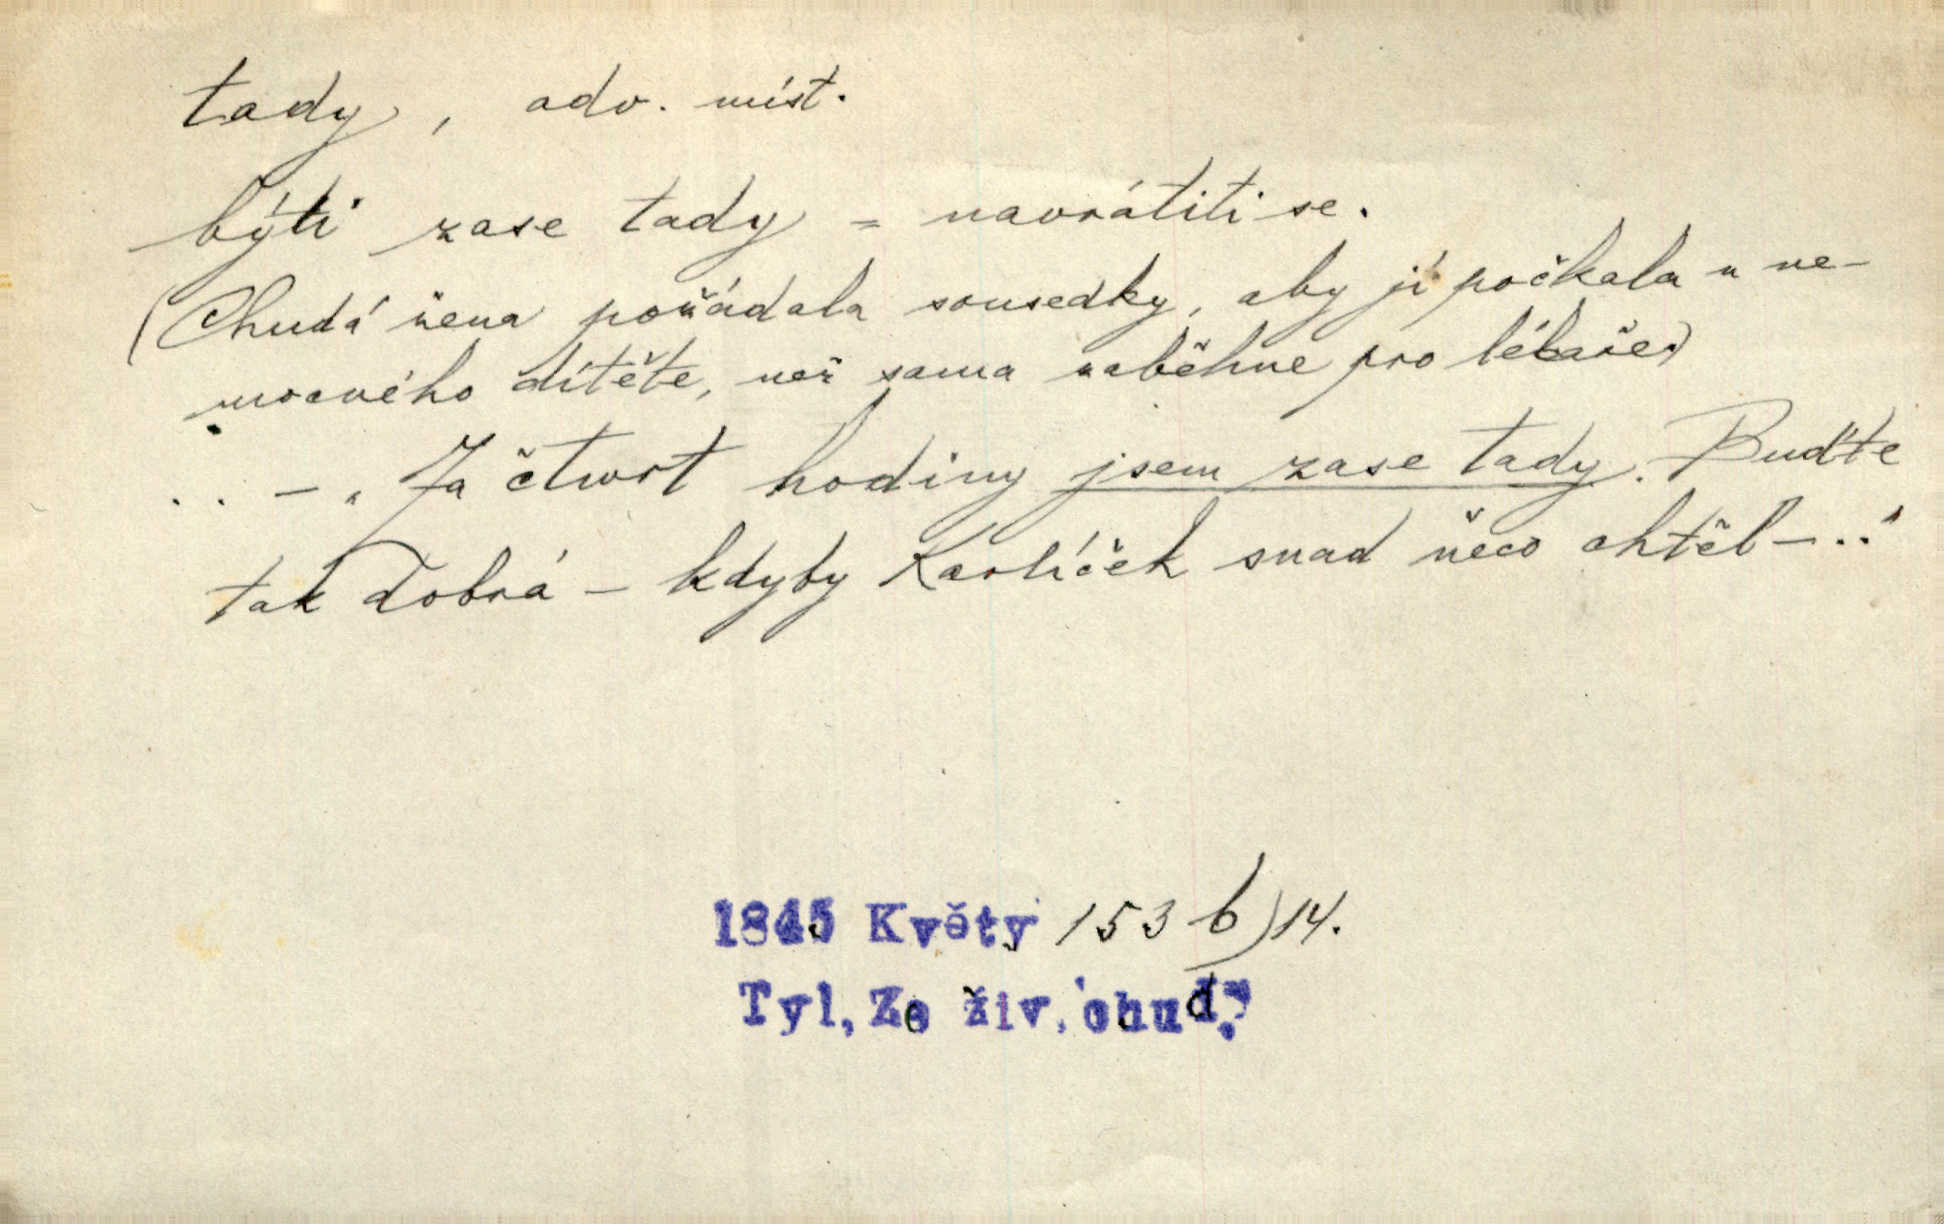 tady, adv. míst.
býti zase tady = navrátiti se.
(Chudá žena požádala sousedky, aby jí počkala u ne-
mocného dítěte, než sama zaběhne pro lékaře)
.. – „Za čtwrt hodiny jsem zase tady. Buďte
tak dobrá – kdyby Karlíček snad něco chtěl – ..“
1845 Květy 153 b) 14.
Tyl, Ze živ. chud.